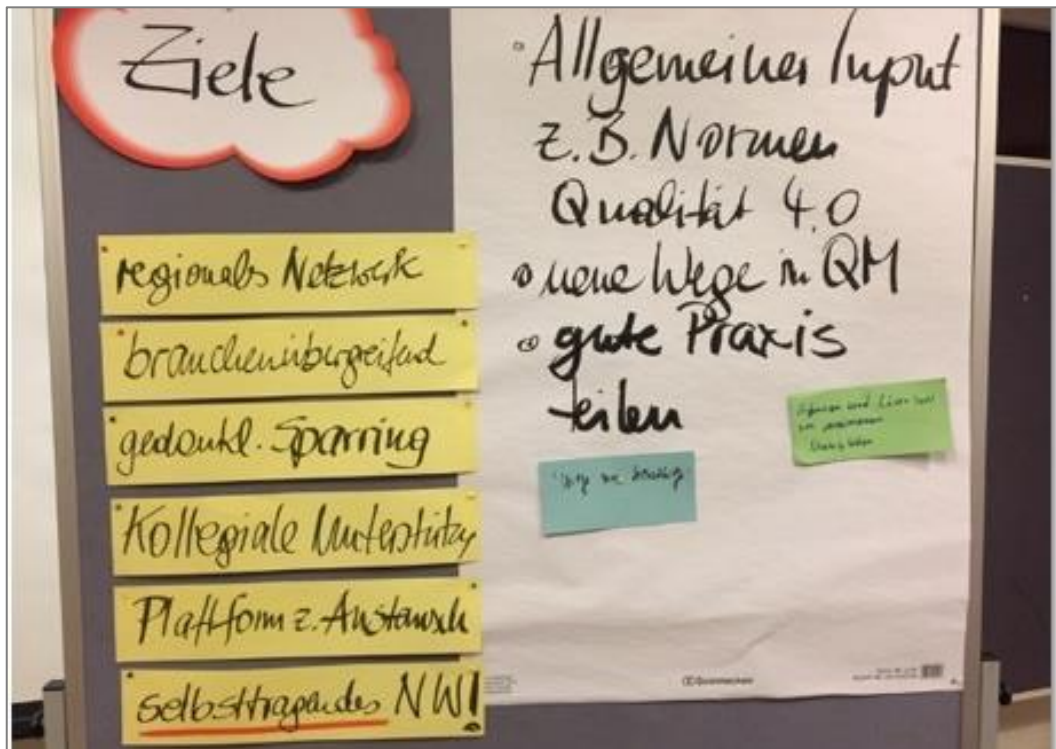 Ziele
regionales Netzwerk
branchenübergreifend
gedankl. Sparring
Kollegiale Unterstützg
Plattform z. Austausch
selbsttragendes NW!
Allgemeiner Input
z.B. Normen
Qualität 4.0
neue Wege im QM
gute Praxis
teilen